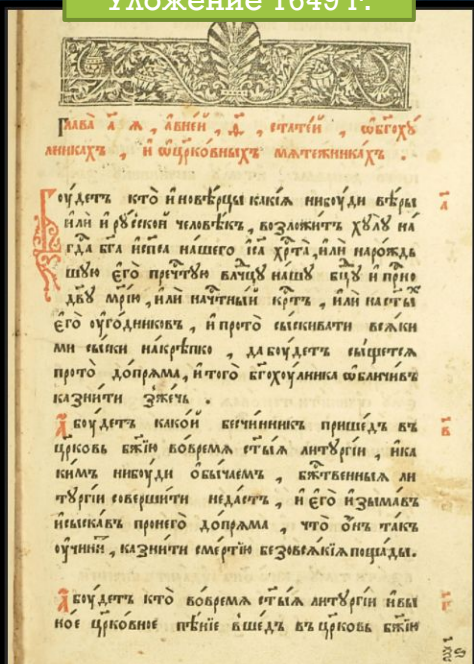 Уложение 1649 г.
Глава̀ а҃ я , а̀вней , д҃ , стате́й , ѡ̑бгохꙋ́
лникахъ , и ѡ̑цр҃ко́вныхъ мѧте́жникахъ .
Боу́детъ кто̀ и̑новѣ́рцы какі́ѧ нибоу́ди вѣ́ры
и҆лѝ и҆рꙋ́сской человѣ́къ , возложи́тъ хꙋлꙋ̀ на́
гд҃а бг҃а и҆сп҃са на́шего і҆с҃а хр҃та̀ , и҆лѝ наро́ждь
шꙋю є҆го̀ пречⷭ҇тꙋю влⷣчцꙋ на́шꙋ бц҃ꙋ и҆ прⷭ҇но
дв҃ꙋ мр҃і́ю , и҆лѝ начтⷭ҇ны́й крⷭ҇тъ , и҆лѝ насты́хъ
є҆го̀ оу҆го́дниковъ , и҆прото̀ сы́скивати всѧ́ки
ми сы́ски накрѣ́пко , да боу́детъ сы́щетсѧ
прото̀ до́прѧма , и҆того̀ бг҃охоу́лника ѡ҆бличи́въ
казни́ти зже́чь .
А҆ боу́детъ како́й безчи́нникъ прише́дъ въ
цр҃ковь бж҃їю во́времѧ ст҃ы́ѧ литꙋргі́и , и҆ка
ки́мъ нибоу́ди ѻ҆бы́чаемъ , бжⷭ҇твенныѧ ли
тꙋргі́и соверши́ти неда́стъ , и҆ є҆го̀ и҆зыма́въ
и҆сыска́въ пронего̀ до́прѧма , что̀ ѻ҆́нъ та́къ
оу҆чини́тъ , казни́ти сме́ртїю безовсѧ́кїѧ поща́ды .
А҆ боу́детъ кто̀ во́времѧ ст҃ы́ѧ литꙋргі́и и҆ вы
но́е цр҃ко́вное пѣ́нїе вше́дъ въ цр҃ковь бж҃їю
а҃
в҃
г҃